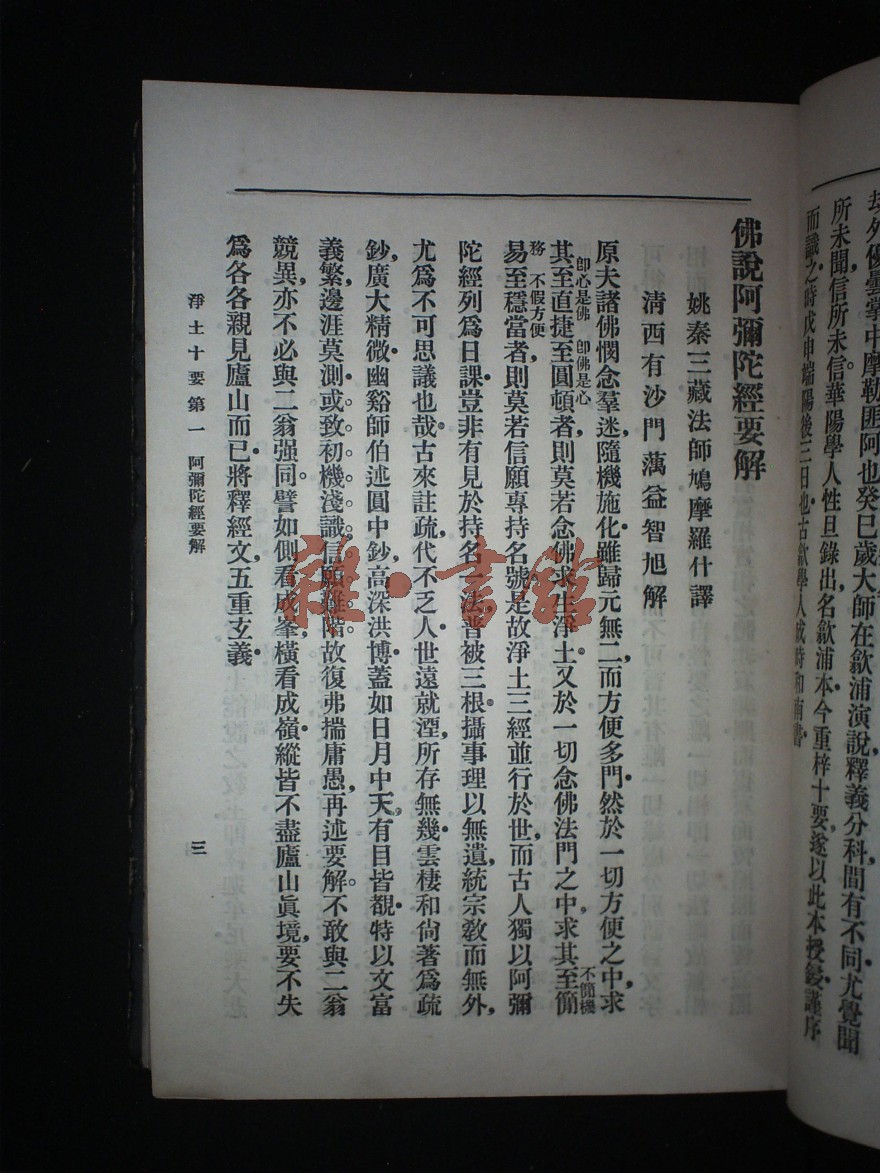 劫外優曇掌中摩勒匪阿也癸巳歲大師在歙浦演說釋義分科，間有不同，尤覺聞
所未聞，信所未信。華陽學人性旦錄出，名歙浦本，今重梓十要，遂以此本授鋟，謹序
而識之。時戊申端陽後三日也，古歙學人成時和南書
佛說阿彌陀經要解
姚秦三藏法師鳩摩羅什譯
清西有沙門蕅益智旭解
原夫諸佛憫念羣迷，隨機施化，雖歸元無二，而方便多門。然於一切方便之中，求
其至直捷即心是佛至圓頓即佛是心者，則莫若念佛求生淨土。又於一切念佛法門之中，求其至簡不簡機
易務至穩當不假方便者，則莫若信願專持名號。是故淨土三經並行於世，而古人獨以阿彌
陀經列爲日課，豈非有見於持名一法，普被三根，攝事理以無遺，統宗教而無外，
尤爲不可思議也哉。古來註疏，代不乏人，世遠就湮，所存無幾。雲棲和尙著爲疏
鈔，廣大精微。幽谿師伯述圓中鈔，高深洪博。蓋如日月中天，有目皆覩。特以文富
義繁，邊涯莫測。或致初機淺識，信願難階。故復弗揣庸愚，再述要解。不敢與二翁
競異，亦不必與二翁强同。譬如側看成峯，橫看成嶺，縱皆不盡廬山眞境，要不失
爲各各親見廬山而已。將釋經文，五重玄義。
淨土十要第一 阿彌陀經要解
三
雜·書館